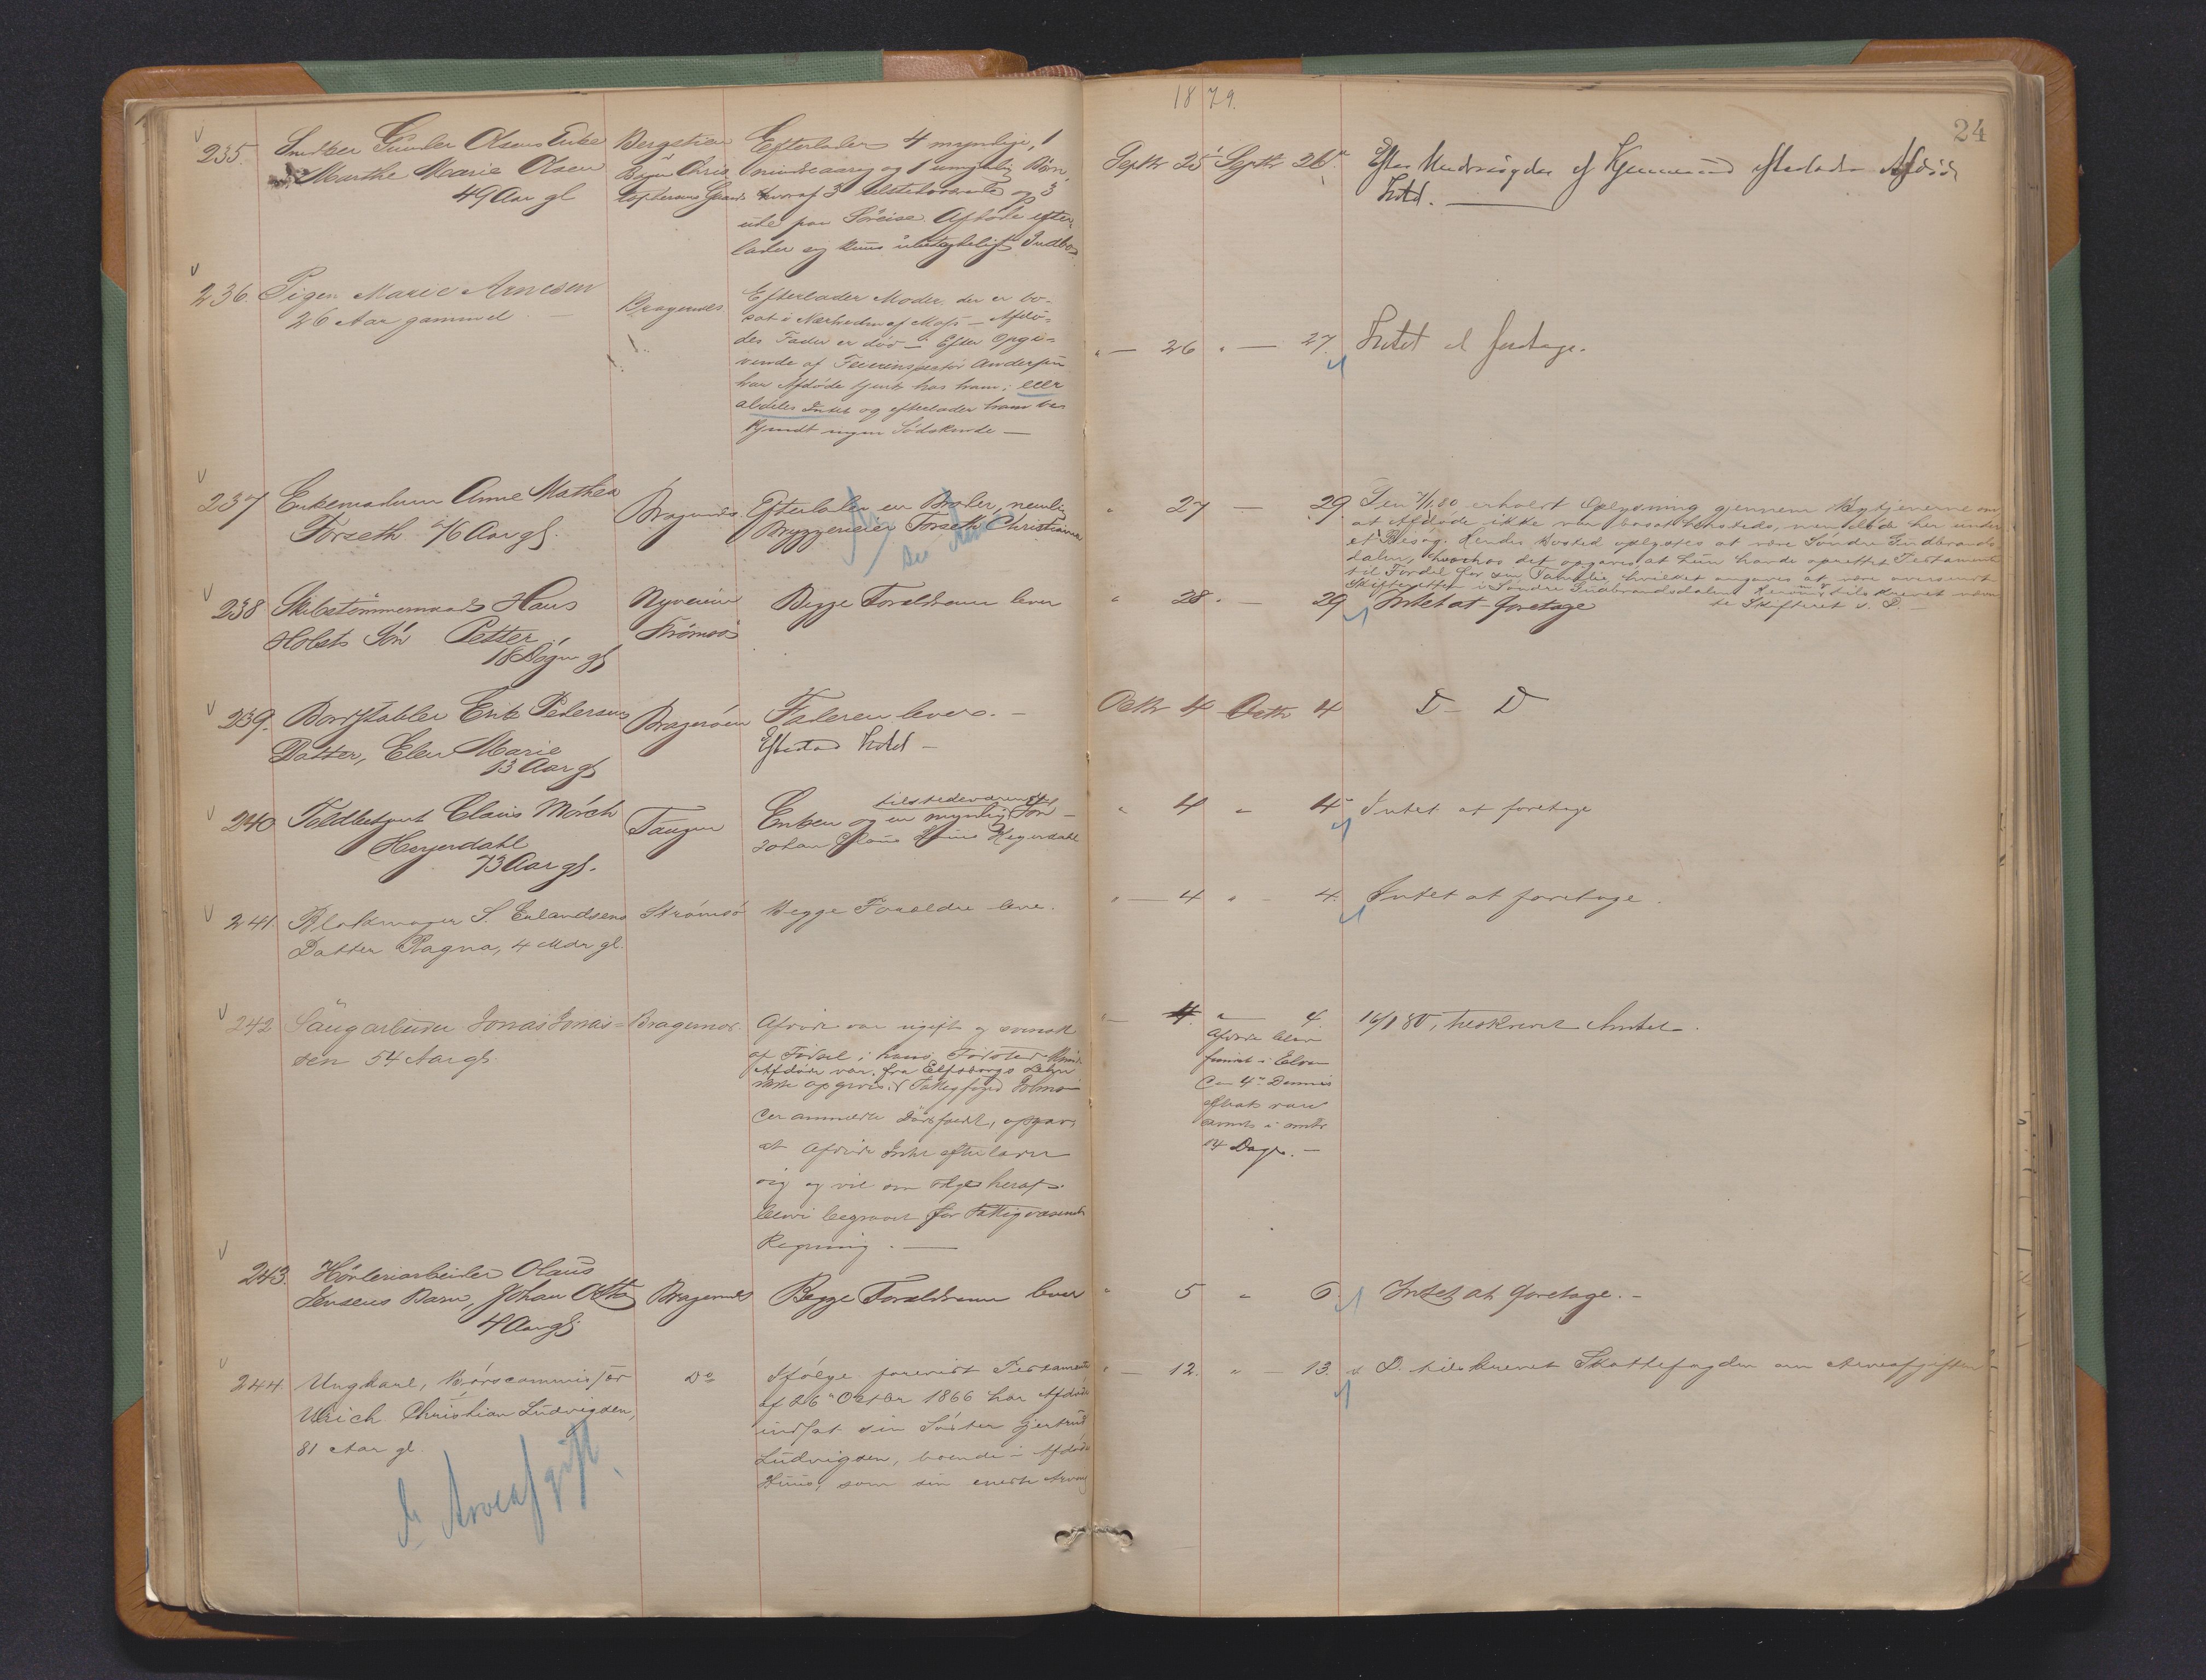 1879.
24
235. Snedker Gunder Olsens Enke
Marthe Marie Olsen
49 Aar gl
Bergstien
Chris
Efterlader 4 myndige, 1
mindreaarig og 1 umyndig Børn,
hvoraf 3 tilstedeværende og 3
ude paa Søreise. Afdøde efter-
lader sig kuns ubetydeligt Indbo
Septbr 25 Septbr 26
Efter Undersøgelse af efterlader Afdøde
Intet.
236. Pigen Marie Arnesen
26 Aar gammel
Bragernes
Efterlader Moder, der er bo-
sat i Nærheden af Moss - Afdø-
des Fader er død - Efter Opgi-
vende af Feierinspector Andersen
har Afdøde tjent hos ham; eier
aldeles Intet og efterlader ham be-
kjendt ingen Sødskende -
" - 26 " - 27.
Intet at foretage.
237 Enkemadam Anne Mathea
Forseth 76 Aar gl.
Bragernes
Efterlader en Broder, nemlig
Bryggerieier Forseth Christiania
" 27 - 29.
Den 7/1 80 erholdt Oplysning gjennem
at Afdøde ikke var bosat herstede, men døde her under
et Besøg. Hendes Bosted oplystes at være Søndre Gudbrands-
dalen, hvorhos det opgaves at hun havde oprettet Testament
til Fordel for sin Familie, hvilket angaves at være oversendt
Skifteretten i Søndre Gudbrandsdalen. tilskrevet næv-
te Skifteret s. D. -
238 Skibstømmermand Hans
Holsts Søn Petter
18 Døgn gl
Nyveien
Strømsø
Begge Forældrene lever
" 28. - 29
Intet at foretage
239. Bordstabler Erik Pedersens
Datter, Elen Marie
13 Aar gl
Bragerøen
Faderen lever. -
Efterlod Intet -
Octbr 4 Octbr 4
D - D
240 Toldbetjent Claus Mørch
Heyerdahl
73 Aar gl.
Tangen
tilstedeværende
Enken og en myndig Søn -
Johan Heyerdahl
" 4 " 4
Intet at foretage
241. Blokmager S. Erlandsens
Datter Ragna, 4 Mdr gl.
Strømsø
Begge Forældre leve.
" - 4 " - 4.
Intet at foretage.
242 Saugarbeider Jonas Jonas-
sen 54 Aar gl.
Bragernes
Afdøde var ugift og svensk
af Fødsel; hans Fødsted kunde
Afdøde var fra Elfsborgs Lehn
ikke opgives. Fattigfoged
der anmeldte Dødsfaldet, opgav,
at Afdøde Intet efterlader
sig og vil som Følge heraf
blive begravet for Fattigvæsenets
Regning. -
" - 4. " - 4.
Afdøde blev
funden i Elven
den 4de Dennes
efterat være
savnet i omtr
14 Dage. -
16/1 80, tilskrevet Amtet.
243. Hövleriarbeider Olaus
Jensens Barn, Johan Otto
4 Aar gl
Bragernes
Begge Forældrene lever
" 5 " 6
Intet at foretage. -
244 Ungkarl, Börscommissær
Ulrich Christian Ludvigsen,
81 Aar gl.
Do
Ifølge forevist Testamente
af 26 Octbr 1866 har Afdøde
indsat sin Søster Gjertrud
Ludvigsen, boende i Afdødes
Huus, som sin eneste Arving
" - 12. " - 13.
s. D. tilskrevet Skattefogden om Arveafgiften
Arveafgift